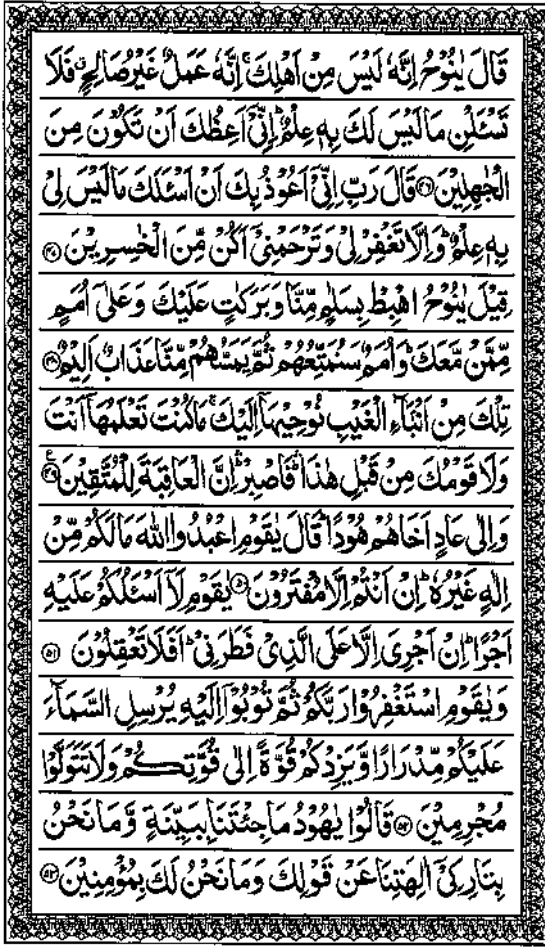 قَالَ يٰنُوْحُ اِنَّهٗ لَيْسَ مِنْ اَهْلِكَ ۚ اِنَّهٗ عَمَلٌ غَيْرُ صَالِحٍ ۖ فَلَا
تَسْـَٔلْنِ مَا لَيْسَ لَكَ بِهٖ عِلْمٌ ؕ اِنِّىْۤ اَعِظُكَ اَنْ تَكُوْنَ مِنَ
الْجٰهِلِيْنَ ﴿۴۶﴾ قَالَ رَبِّ اِنِّىْۤ اَعُوْذُ بِكَ اَنْ اَسْـَٔلَكَ مَا لَيْسَ لِىْ
بِهٖ عِلْمٌ ؕ وَاِلَّا تَغْفِرْ لِىْ وَتَرْحَمْنِىْۤ اَكُنْ مِّنَ الْخٰسِرِيْنَ ﴿۴۷﴾
قِيْلَ يٰنُوْحُ اهْبِطْ بِسَلٰمٍ مِّنَّا وَبَرَكٰتٍ عَلَيْكَ وَعَلٰٓى اُمَمٍ
مِّمَّنْ مَّعَكَ ؕ وَاُمَمٌ سَنُمَتِّعُهُمْ ثُمَّ يَمَسُّهُمْ مِّنَّا عَذَابٌ اَلِيْمٌ ﴿۴۸﴾
تِلْكَ مِنْ اَنْۢبَآءِ الْغَيْبِ نُوْحِيْهَاۤ اِلَيْكَ ۚ مَا كُنْتَ تَعْلَمُهَاۤ اَنْتَ
وَلَا قَوْمُكَ مِنْ قَبْلِ هٰذَا ۛ فَاصْبِرْ ۛ اِنَّ الْعَاقِبَةَ لِلْمُتَّقِيْنَ ﴿۴۹﴾ ع
وَاِلٰى عَادٍ اَخَاهُمْ هُوْدًا ؕ قَالَ يٰقَوْمِ اعْبُدُوا اللّٰهَ مَا لَكُمْ مِّنْ
اِلٰهٍ غَيْرُهٗ ؕ اِنْ اَنْتُمْ اِلَّا مُفْتَرُوْنَ ﴿۵۰﴾ يٰقَوْمِ لَاۤ اَسْـَٔلُكُمْ عَلَيْهِ
اَجْرًا ؕ اِنْ اَجْرِىَ اِلَّا عَلَى الَّذِىْ فَطَرَنِىْ ؕ اَفَلَا تَعْقِلُوْنَ ﴿۵۱﴾
وَيٰقَوْمِ اسْتَغْفِرُوْا رَبَّكُمْ ثُمَّ تُوْبُوْۤا اِلَيْهِ يُرْسِلِ السَّمَآءَ
عَلَيْكُمْ مِّدْرَارًا وَّيَزِدْكُمْ قُوَّةً اِلٰى قُوَّتِكُمْ وَلَا تَتَوَلَّوْا
مُجْرِمِيْنَ ﴿۵۲﴾ قَالُوْا يٰهُوْدُ مَا جِئْتَنَا بِبَيِّنَةٍ وَّمَا نَحْنُ
بِتَارِكِىْۤ اٰلِهَتِنَا عَنْ قَوْلِكَ وَمَا نَحْنُ لَكَ بِمُؤْمِنِيْنَ ﴿۵۳﴾